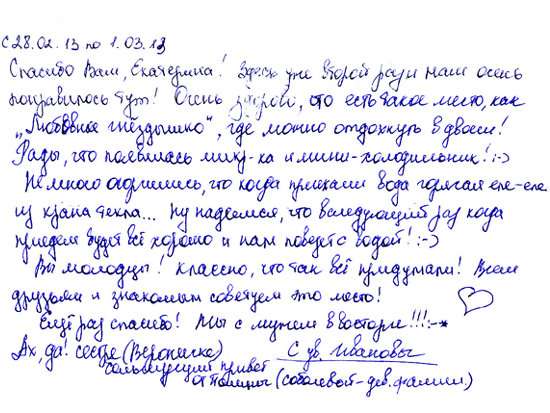 с 28.02.13 по 1.03.13
Спасибо Вам, Екатерина! Здесь уже второй раз и нам очень
понравилось тут! Очень здорово, что есть такое место, как
„Любовное гнёздышко“, где можно отдохнуть вдвоем!
Рады, что появилась мику-ка и мини-холодильник! :-)
Немного огорчились, что когда приехали вода горячая еле-еле
из крана текла... Ну надеемся, что в следующий раз когда
приедем будет всё хорошо и нам повезёт с водой! :-)
Вы молодцы! Классно, что так всё придумали! Всем
друзьям и знакомым советуем это место!
Ещё раз спасибо! Мы с мужем в восторге!!! :-*
Ах, да! сестре (Вероничке) С ув. Ивановы
большущий привет
от Полины (Соболевой-дев. фамилия)